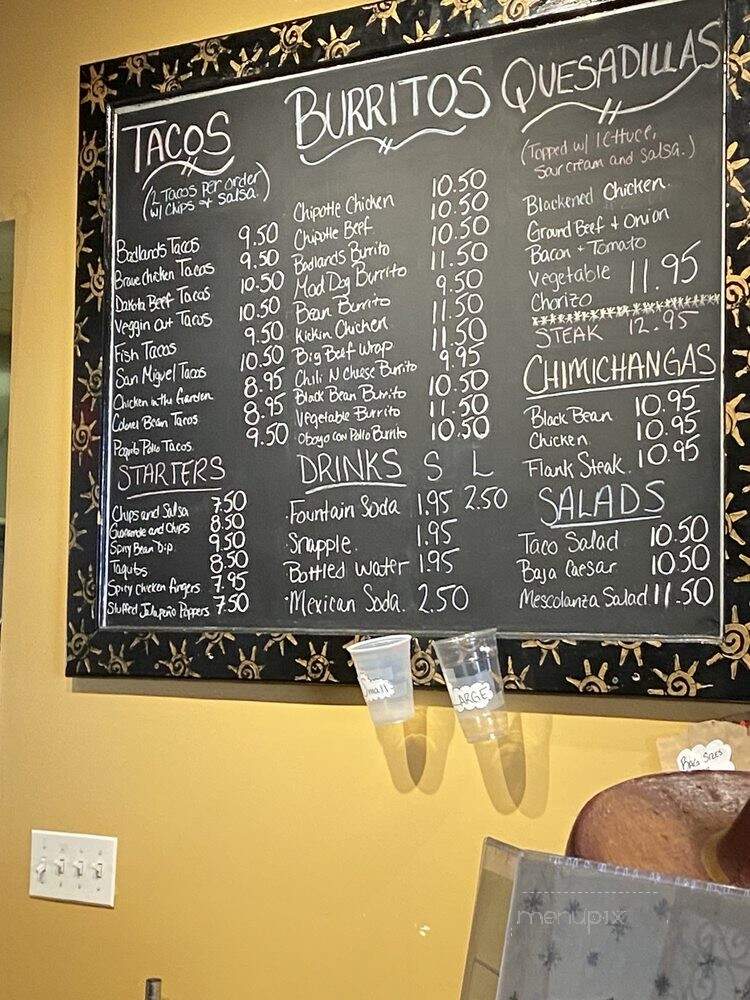 TACOS
(2 Tacos per order
w/ Chips + Salsa.)
Badlands Tacos 9.50
Brave Chicken Tacos 9.50
Dakota Beef Tacos 10.50
Veggin Out Tacos 10.50
Fish Tacos 9.50
San Miguel Tacos 10.50
Chicken in the Garden 8.95
Colonel Bean Tacos 8.95
Poquito Pollo Tacos 9.50
STARTERS
Chips and Salsa 7.50
Guacamole and Chips 8.50
Spicy Bean Dip 9.50
Taquitos 8.50
Spicy Chicken fingers 7.95
Stuffed Jalapeño Poppers 7.50
BURRITOS
Chipotle Chicken 10.50
Chipotle Beef 10.50
Badlands Burrito 10.50
Mad Dog Burrito 11.50
Bean Burrito 9.50
Kickin Chicken 11.50
Big Beef Wrap 11.50
Chili N Cheese Burrito 9.95
Black Bean Burrito 10.50
Vegetable Burrito 11.50
Oboyo con Pollo Burrito 10.50
DRINKS S L
Fountain Soda 1.95 2.50
Snapple 1.95
Bottled Water 1.95
Mexican Soda. 2.50
QUESADILLAS
(Topped w/ lettuce,
Sour cream and Salsa.)
Blackened Chicken
Ground Beef + Onion
Bacon + Tomato
Vegetable 11.95
Chorizo
STEAK 12.95
CHIMICHANGAS
Black Bean 10.95
Chicken 10.95
Flank Steak 10.95
SALADS
Taco Salad 10.50
Baja Caesar 10.50
Mescolanza Salad 11.50
Small
LARGE
Bag Sizes
menupix